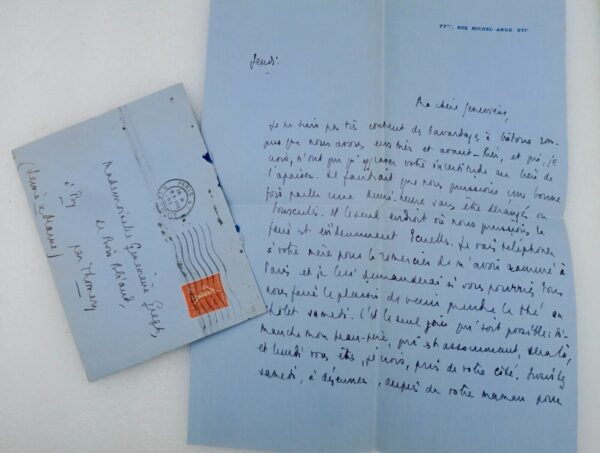 77bis, RUE MICHEL-ANGE XVIe
Jeudi.
Ma chère Geneviève,
Je ne suis pas très content des bavardages à bâtons rom-
pus que nous avons eus hier et avant-hier, et qui, je
crois, n'ont qu' votre incertitude au lieu de
l'apaiser. Il faudrait que nous puissions une bonne
fois parler une demi-heure sans être dérangés ou
bousculés. Et le seul endroit où nous puissions le
faire est évidemment Ecuelles. Je vais téléphoner
à votre mère pour la remercier de m'avoir ramené à
Paris et je lui demanderai si vous pourriez tous
nous faire le plaisir de venir prendre le thé au
châlet samedi. C'est le seul jour qui soit possible: di-
manche mon beau-père, qui est assommant, sera là,
et lundi vous êtes, je crois, prise de votre côté.
samedi, à déjeuner, auprès de votre maman pour
Mademoiselle Geneviève Gregh,
Le Bois Blaud,
à By
par Thomery
(Seine & Marne)
PARIS